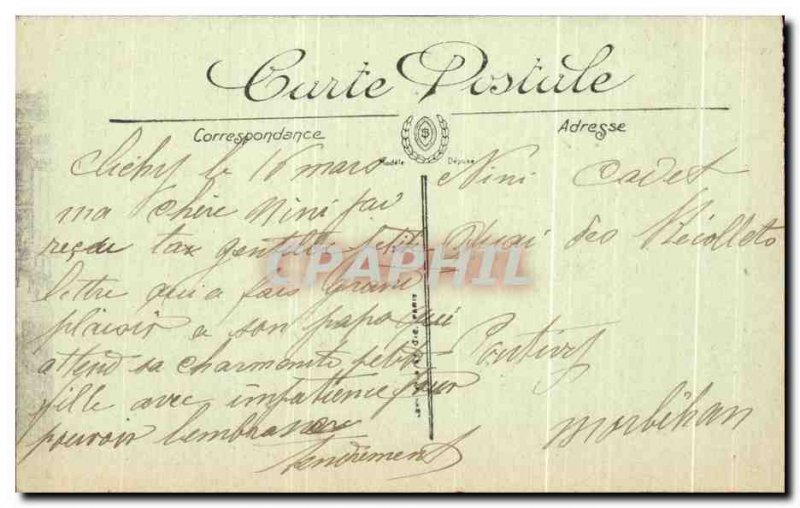 Carte Postale
Correspondance
Adresse
Modèle Déposé
Clichy le 16 mars
ma chère Nini jai
reçue tax gentille petite
lettre qui a fais grand
plaisir a son papa qui
attend sa charmante petite
fille avec impatience pour
pouvoir lembrasser
tendrement
Nini Cadet
Quai des Récollets
Pontivy
Morbihan
CPAPHIL
PARIS